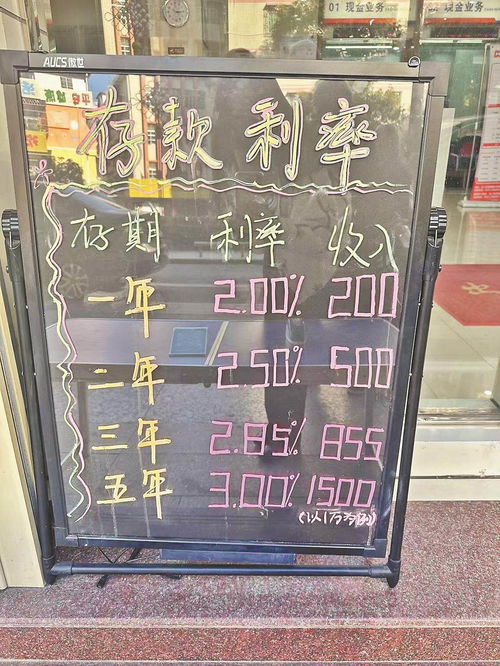 01 现金业务
02 现金业务
AUCS傲世
存款利率
存期 利率 收入
一年 2.00% 200
二年 2.50% 500
三年 2.85% 855
五年 3.00% 1500
(以1万为例)